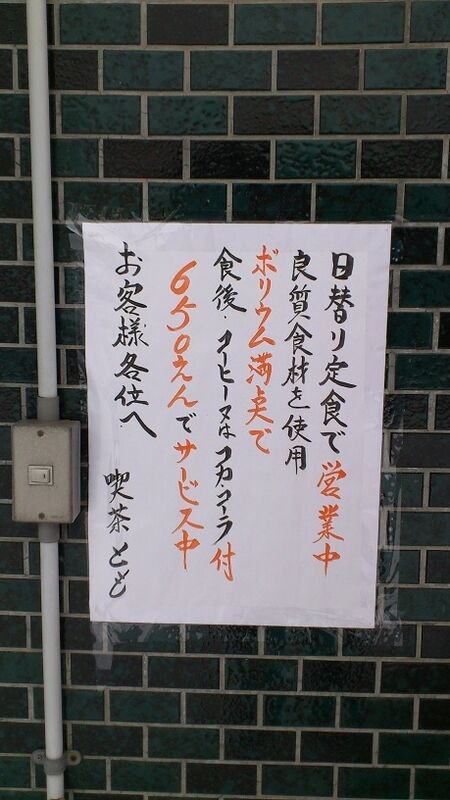 日替り定食で営業中
良質食材を使用
ボリウム満点で
食後・コーヒー又はコカコーラ付
650えんでサービス中
お客様各位へ 喫茶とも